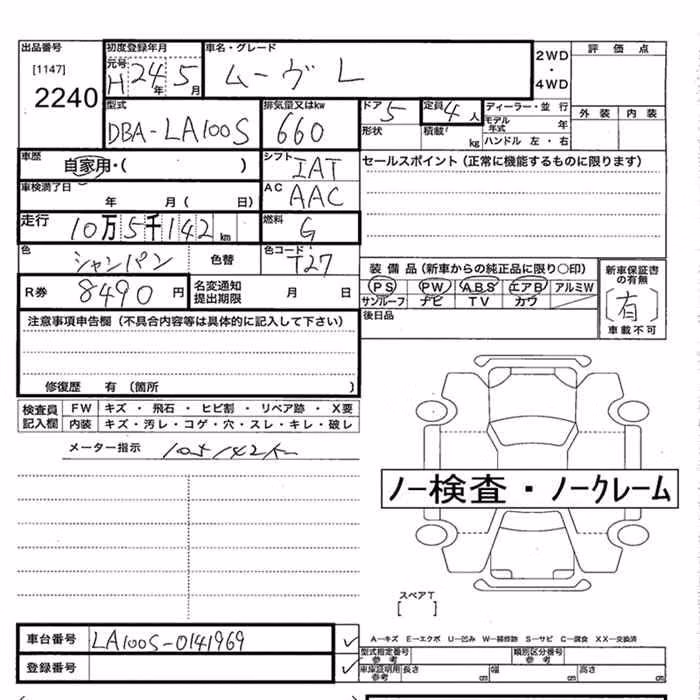 出品番号 初度登録年月 車名・グレード 2WD・4WD 評価点
[1147] 元号 H 24年 5月 ムーヴ L
2240 外装 内装
型式 排気量又はkw ドア 5 定員 4人 ディーラー・並行
DBA-LA100S 660 形状 積載 kg モデル年式 年
ハンドル 左・右
車歴 自家用・( ) シフト IAT セールスポイント（正常に機能するものに限ります）
車検満了日 年 月( 日) AC AAC
走行 10万5千142km 燃料 G
色 シャンパン 色替 色コード T27 装備品（新車からの純正品に限り〇印） 新車保証書の有無
R券 8490円 名変通知提出期限 月 日 PS PW ABS エアB アルミW [有]
サンルーフ ナビ TV カワ 車載不可
注意事項申告欄（不具合内容等は具体的に記入して下さい） 後日品
修復歴 有（箇所 ）
検査員 FW キズ・飛石・ヒビ割・リペア跡・X要
記入欄 内装 キズ・汚レ・コゲ・穴・スレ・キレ・破レ
メーター指示 105142km
ノー検査・ノークレーム
スペアT
[ ]
車台番号 LA100S-0141969 A－キズ E－エクボ U－凹み W－補修跡 S－サビ C－腐食 XX－交換済
型式指定番号 参考 類別区分番号 参考
登録番号 車庫証明用 参考 長さ cm 幅 cm 高さ cm